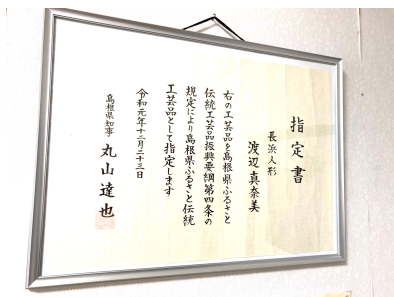 指定書
長浜人形
渡辺真奈美
右の工芸品を島根県ふるさと
伝統工芸品振興要綱第四条の
規定により島根県ふるさと伝統
工芸品として指定します
令和元年十二月二十三日
島根県知事 丸山達也